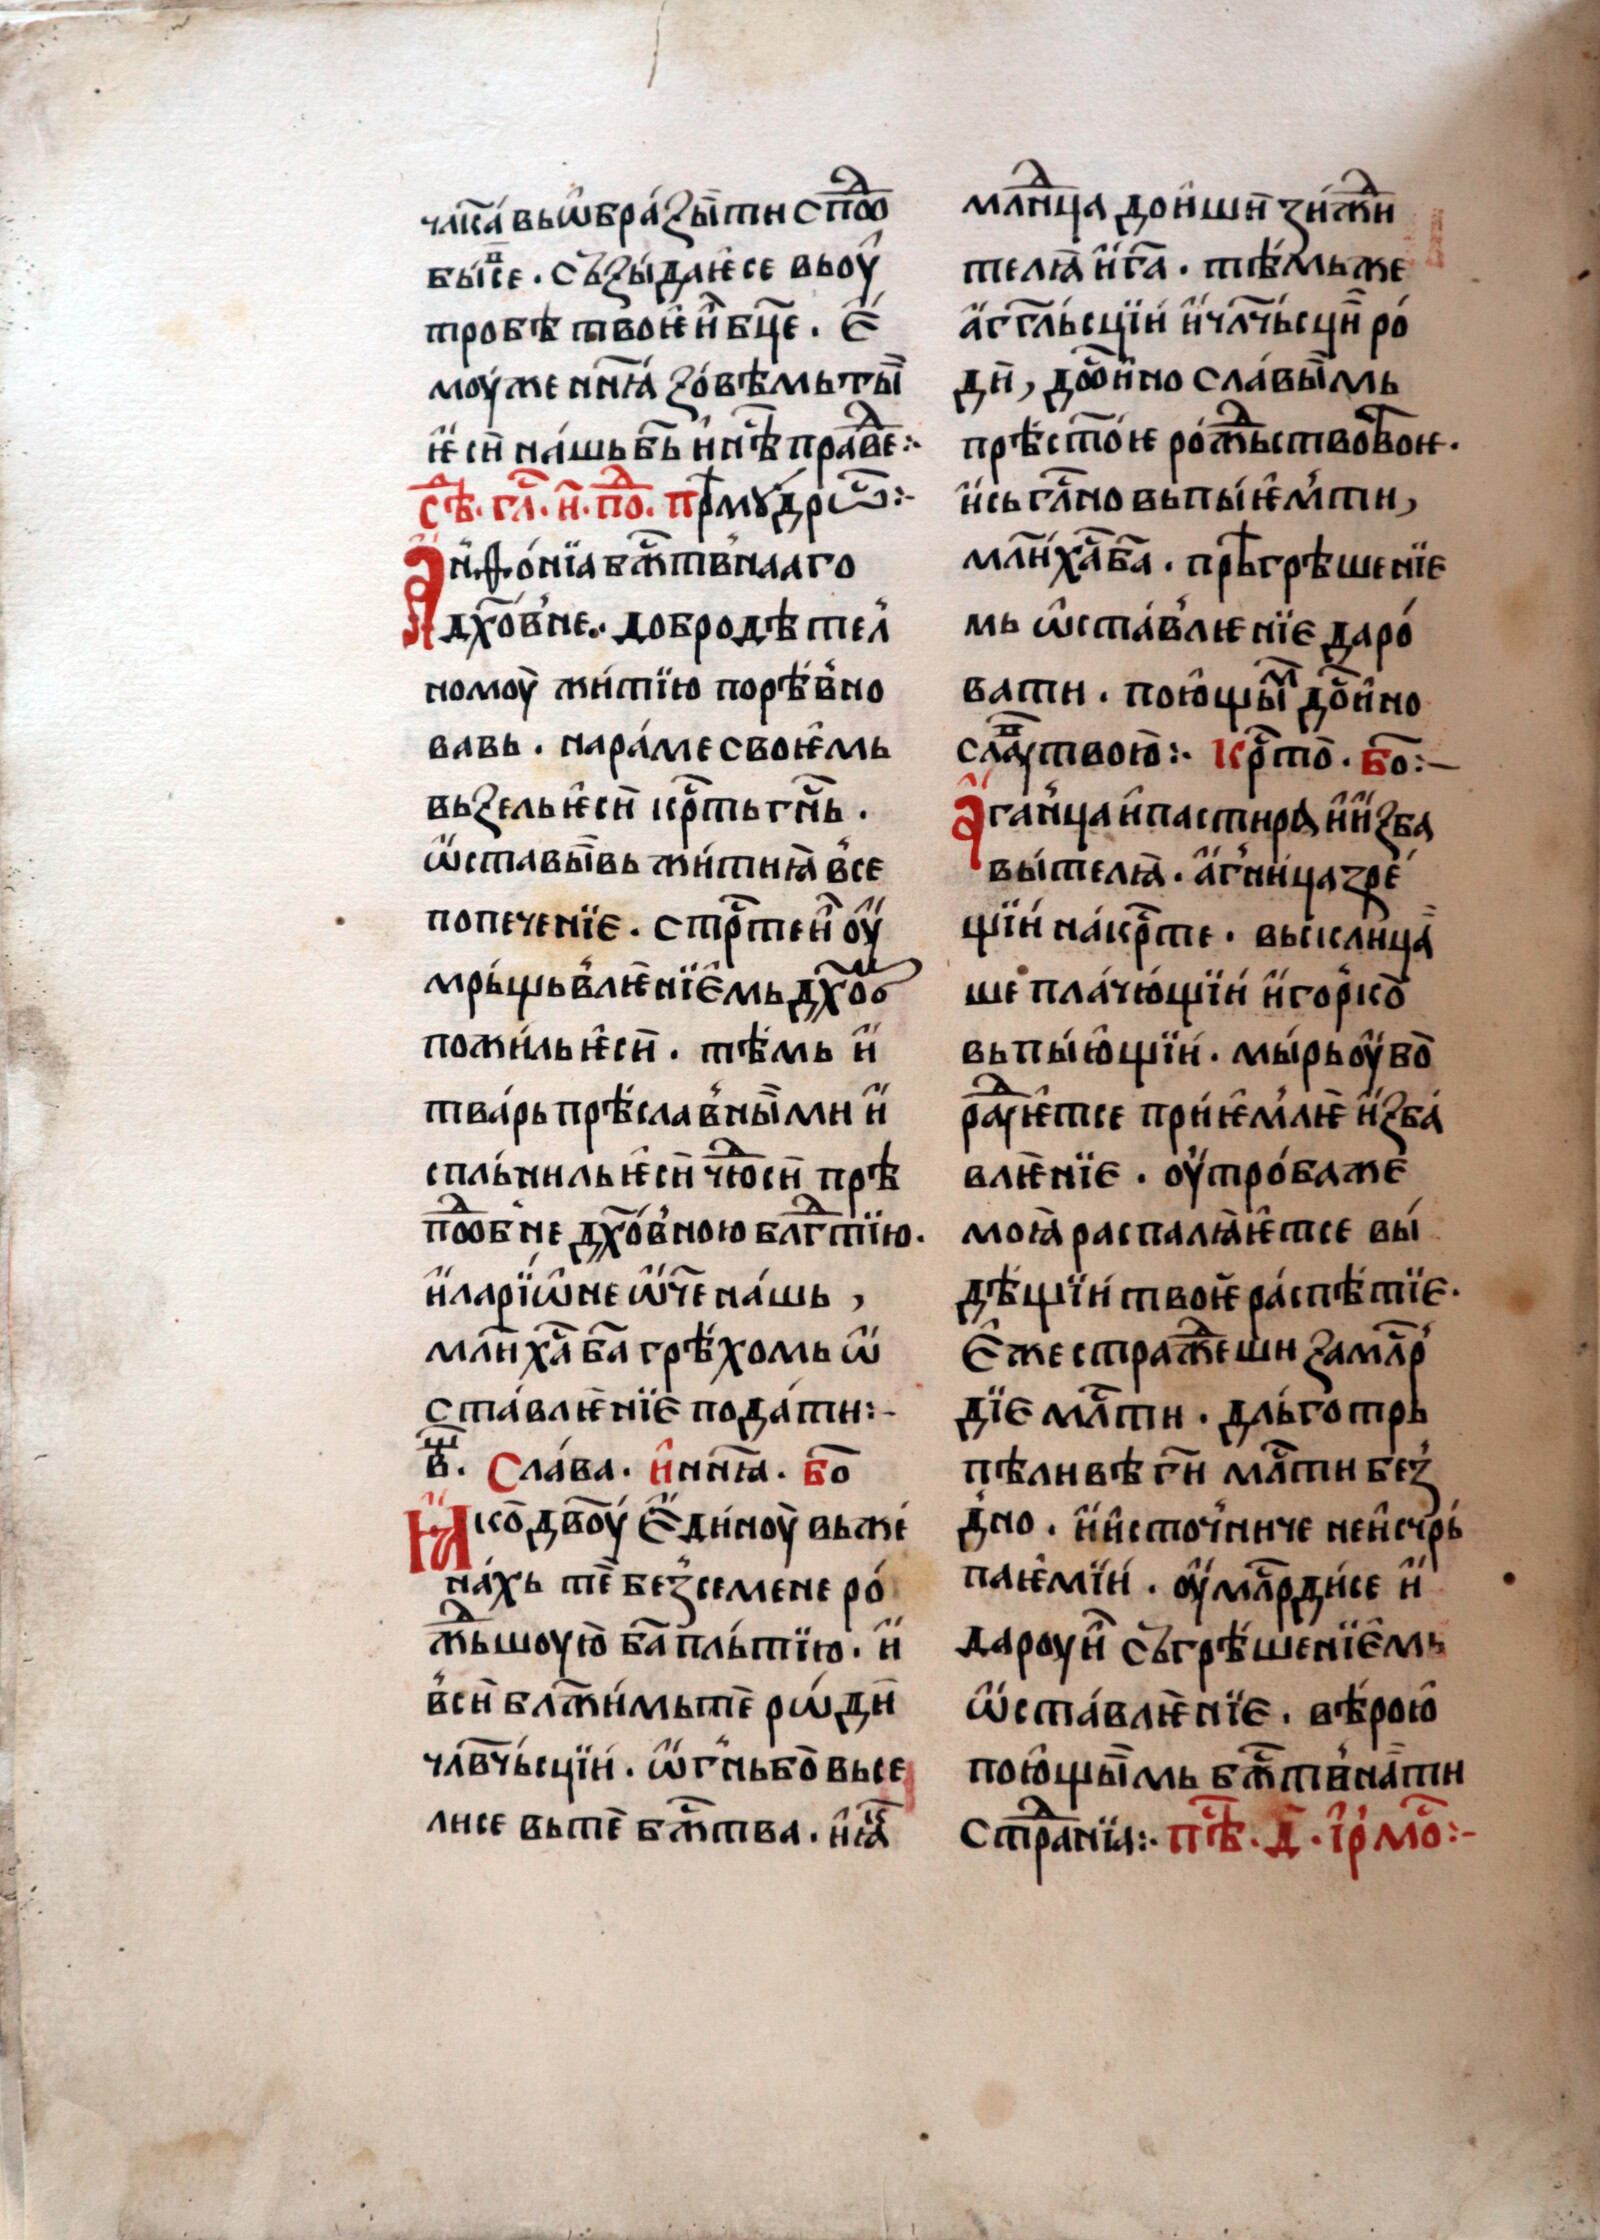 чл҃ка́ вьѡ҆бра́зы̏ти спⷣо
бы́псе . съ́зы́даѥ҆се вьоу҆
тробѣ твоѥ҆и҆ бц҃е . Е҆
моу́же ннꙗ҃ зо́вѣмь ты̏
ѥ҆сн҆ на́шь бь҃ и҆ нѣⷭ҇ праⷣве:·
Сѣⷣ . глⷭ҇ . и҃ . поⷣ . Прⷨму́дрѡⷭ҇:·
А҆н҆ѳо́нїа бжⷭ҇твнааго
дх҃о́вне . добродѣтел
номоу̏ жи́тїю порѣ́вно
вавь . нара́ме своѥ҆мь
вьзель ѥ҆сн҆ крⷭ҇ть гн҃ь .
ѡ҆ставы̏вь жи́тиꙗ҆ все
попеченїе . стрⷭ҇теи҆ оу҆
мрьщьвлѥ҆нїе҆мь дх҃о́в
пожи́ль ѥ҆сн҆ . тѣ́мь и҆
тва́рь прѣ́славны̏ми и҆
спль́ниль ѥ҆сн҆ чюⷣсн҆ прѣ
пⷣобне дх҃о́вною блгⷣтїю .
и҆ларїѡ҆не ѡ҆ч҃е на́шь ,
млн҆ ха҃ ба҃ грѣ́хомь ѡ҆
ста́влѥ҆нїе пода́ти:·
в҃ . Слава . и҆ ннꙗ҃ . боⷢ
Ꙗ҆ко дв҃оу́ е҆ди́ноу̏ вьже
на́хь те̏ безсемене ро́
жⷣьшоую҆ ба҃ пль́тїю . и҆
всн҆ блжи́мь те̏ рѡ́дн҆
чл҃вчьсцїи́ . ѡ҆гнь бо̏ высе
лисе вьте̏ бжⷭ҇тва . и҆ ꙗ҆ⷦ҇
млⷣнца дои́шн҆ зи́жⷣи
телꙗ҆ и҆ га҃ . тѣ́мьже
а҆гг҃ль́сцїи́ и҆ чл҃чьсцн҆ ро́
дн҆ , доⷭ҇и́но сла́вы̏мь
прѣ́стоѥ рожⷣьство твоѥ .
и҆сь гл҃но вьпы́ѥ҆мти ,
млн҆ ха҃ ба҃ . прⷨгрѣшенїе
мь ѡ҆ста́влѥнїе даро́
вати . пою҆щыⷨ доⷭ҇и́но
слаⷡ твою:· Крⷭ҇то . Бо:—
А҆гаⷩ҇ца и҆ пастира и҆ и҆зба
вы́телꙗ . а҆гни́ца зре́
щїи́ на крⷭ҇те . вьсклн҆ца
ше пла́чю҆щїи́ и҆ го́рко
вьпы́ю҆щїи́ . мы́рь оу҆бо
раⷣуѥ҆тсе при́ѥ҆млѥ҆ и҆зба́
влѥ҆нїе . оу҆тро́ба же
моꙗ҆ распалꙗ҆ѥ҆тсе вы́
дѣщїи́ твоѥ҆ ра́спѣтїе .
Е҆же стражⷣеши за млⷭ҇р
дїе млⷭ҇ти . дль́готрь
пѣли́вѣ гн҃ млⷭ҇ти без
дно . и҆ и҆сто́чниче не и҆счрь
паѥ҆мїи́ . оу҆млⷭ҇рди́се и҆
дароу и҆ съ́грѣшенїе҆мь
ѡ҆ста́влѥ҆нїе . вѣ́рою҆
пою҆щы̏мь бжⷭ҇твна ти
стрⷣанїа:· Пѣⷭ҇ . д҃ . і҆рмоⷭ҇:·